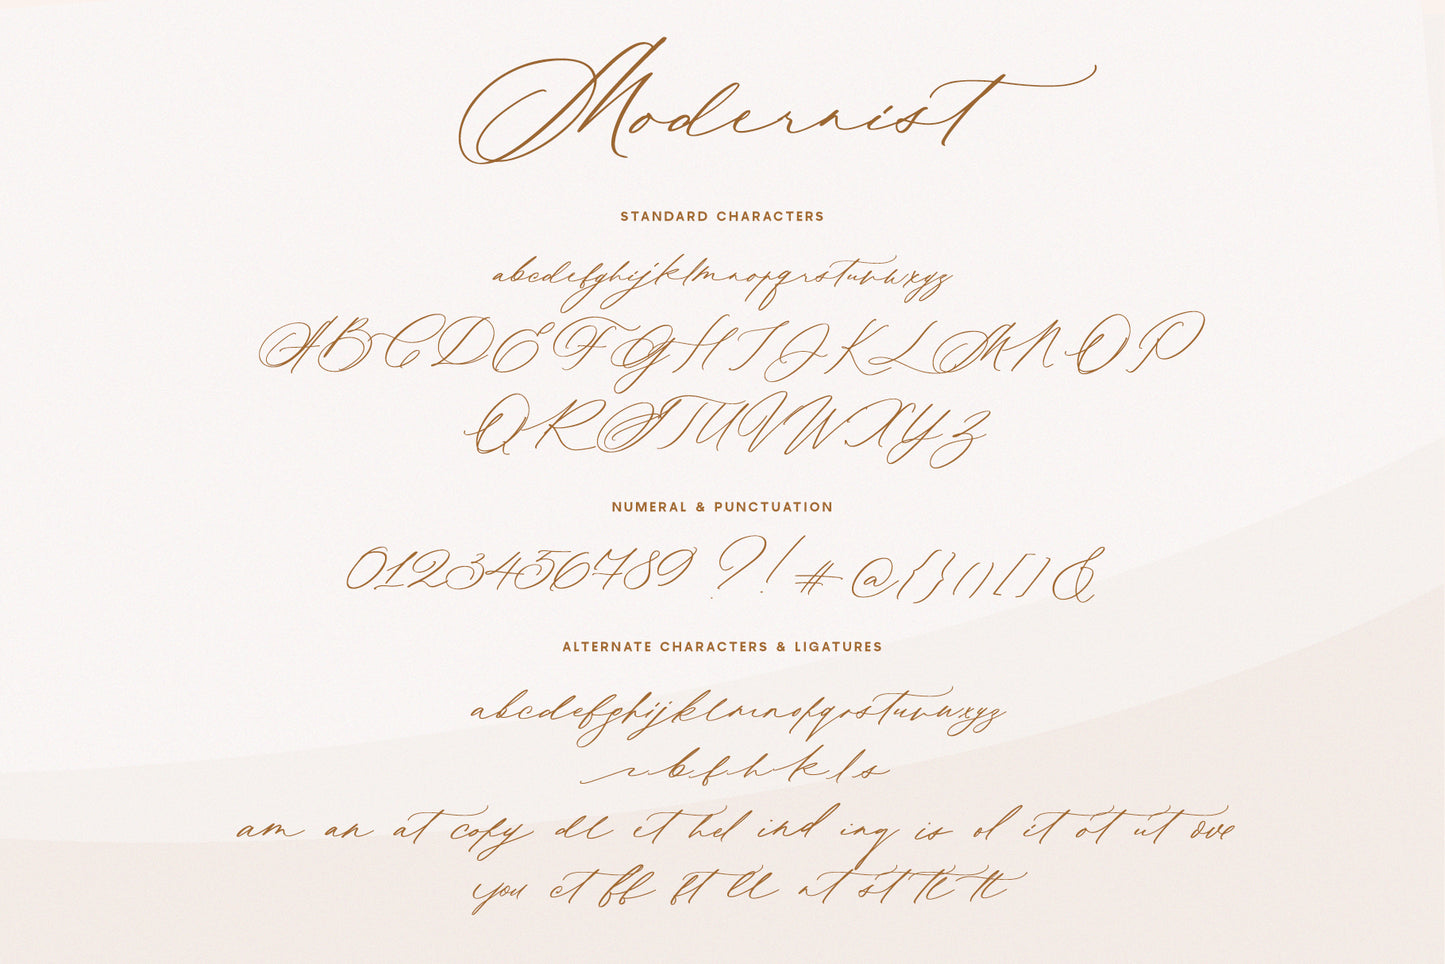 Modernist
STANDARD CHARACTERS
abcdefghijklmnopqrstuvwxyz
ABCDEFGHIJKLMNOP
QRSTUVWXYZ
NUMERAL & PUNCTUATION
0123456789 ?!#@{}()[]&
ALTERNATE CHARACTERS & LIGATURES
abcdefghijklmnopqrstuvwxyz
b f h k l s
am an at copy dl et hel ind ing is ol it ot ut ove
you ct ff ft ll nt st tl tt